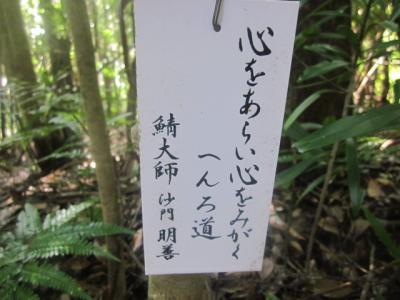 心をあらい心をみがく
へんろ道
鯖大師 沙門 明善